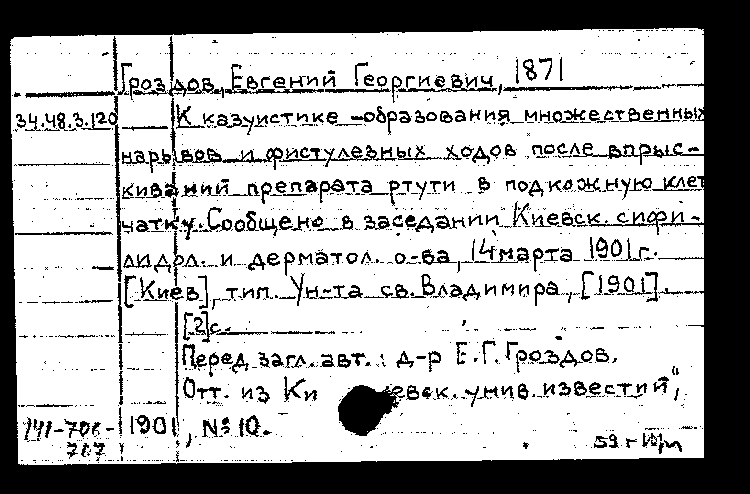 Гроздов, Евгений Георгиевич, 1871
34.48.3.120 К казуистике образования множественных
нарывов и фистулезных ходов после впрыс-
киваний препарата ртути в подкожную клет
чатку. Сообщено в заседании Киевск. сифи-
лидол. и дерматол. о-ва, 14 марта 1901 г.
[Киев], тип. Ун-та св. Владимира, [1901].
[2]с.
Перед загл. авт.: д-р Е.Г. Гроздов.
Отт. из Ки евск. унив. известий",
1901, № 10.
141-706-
707